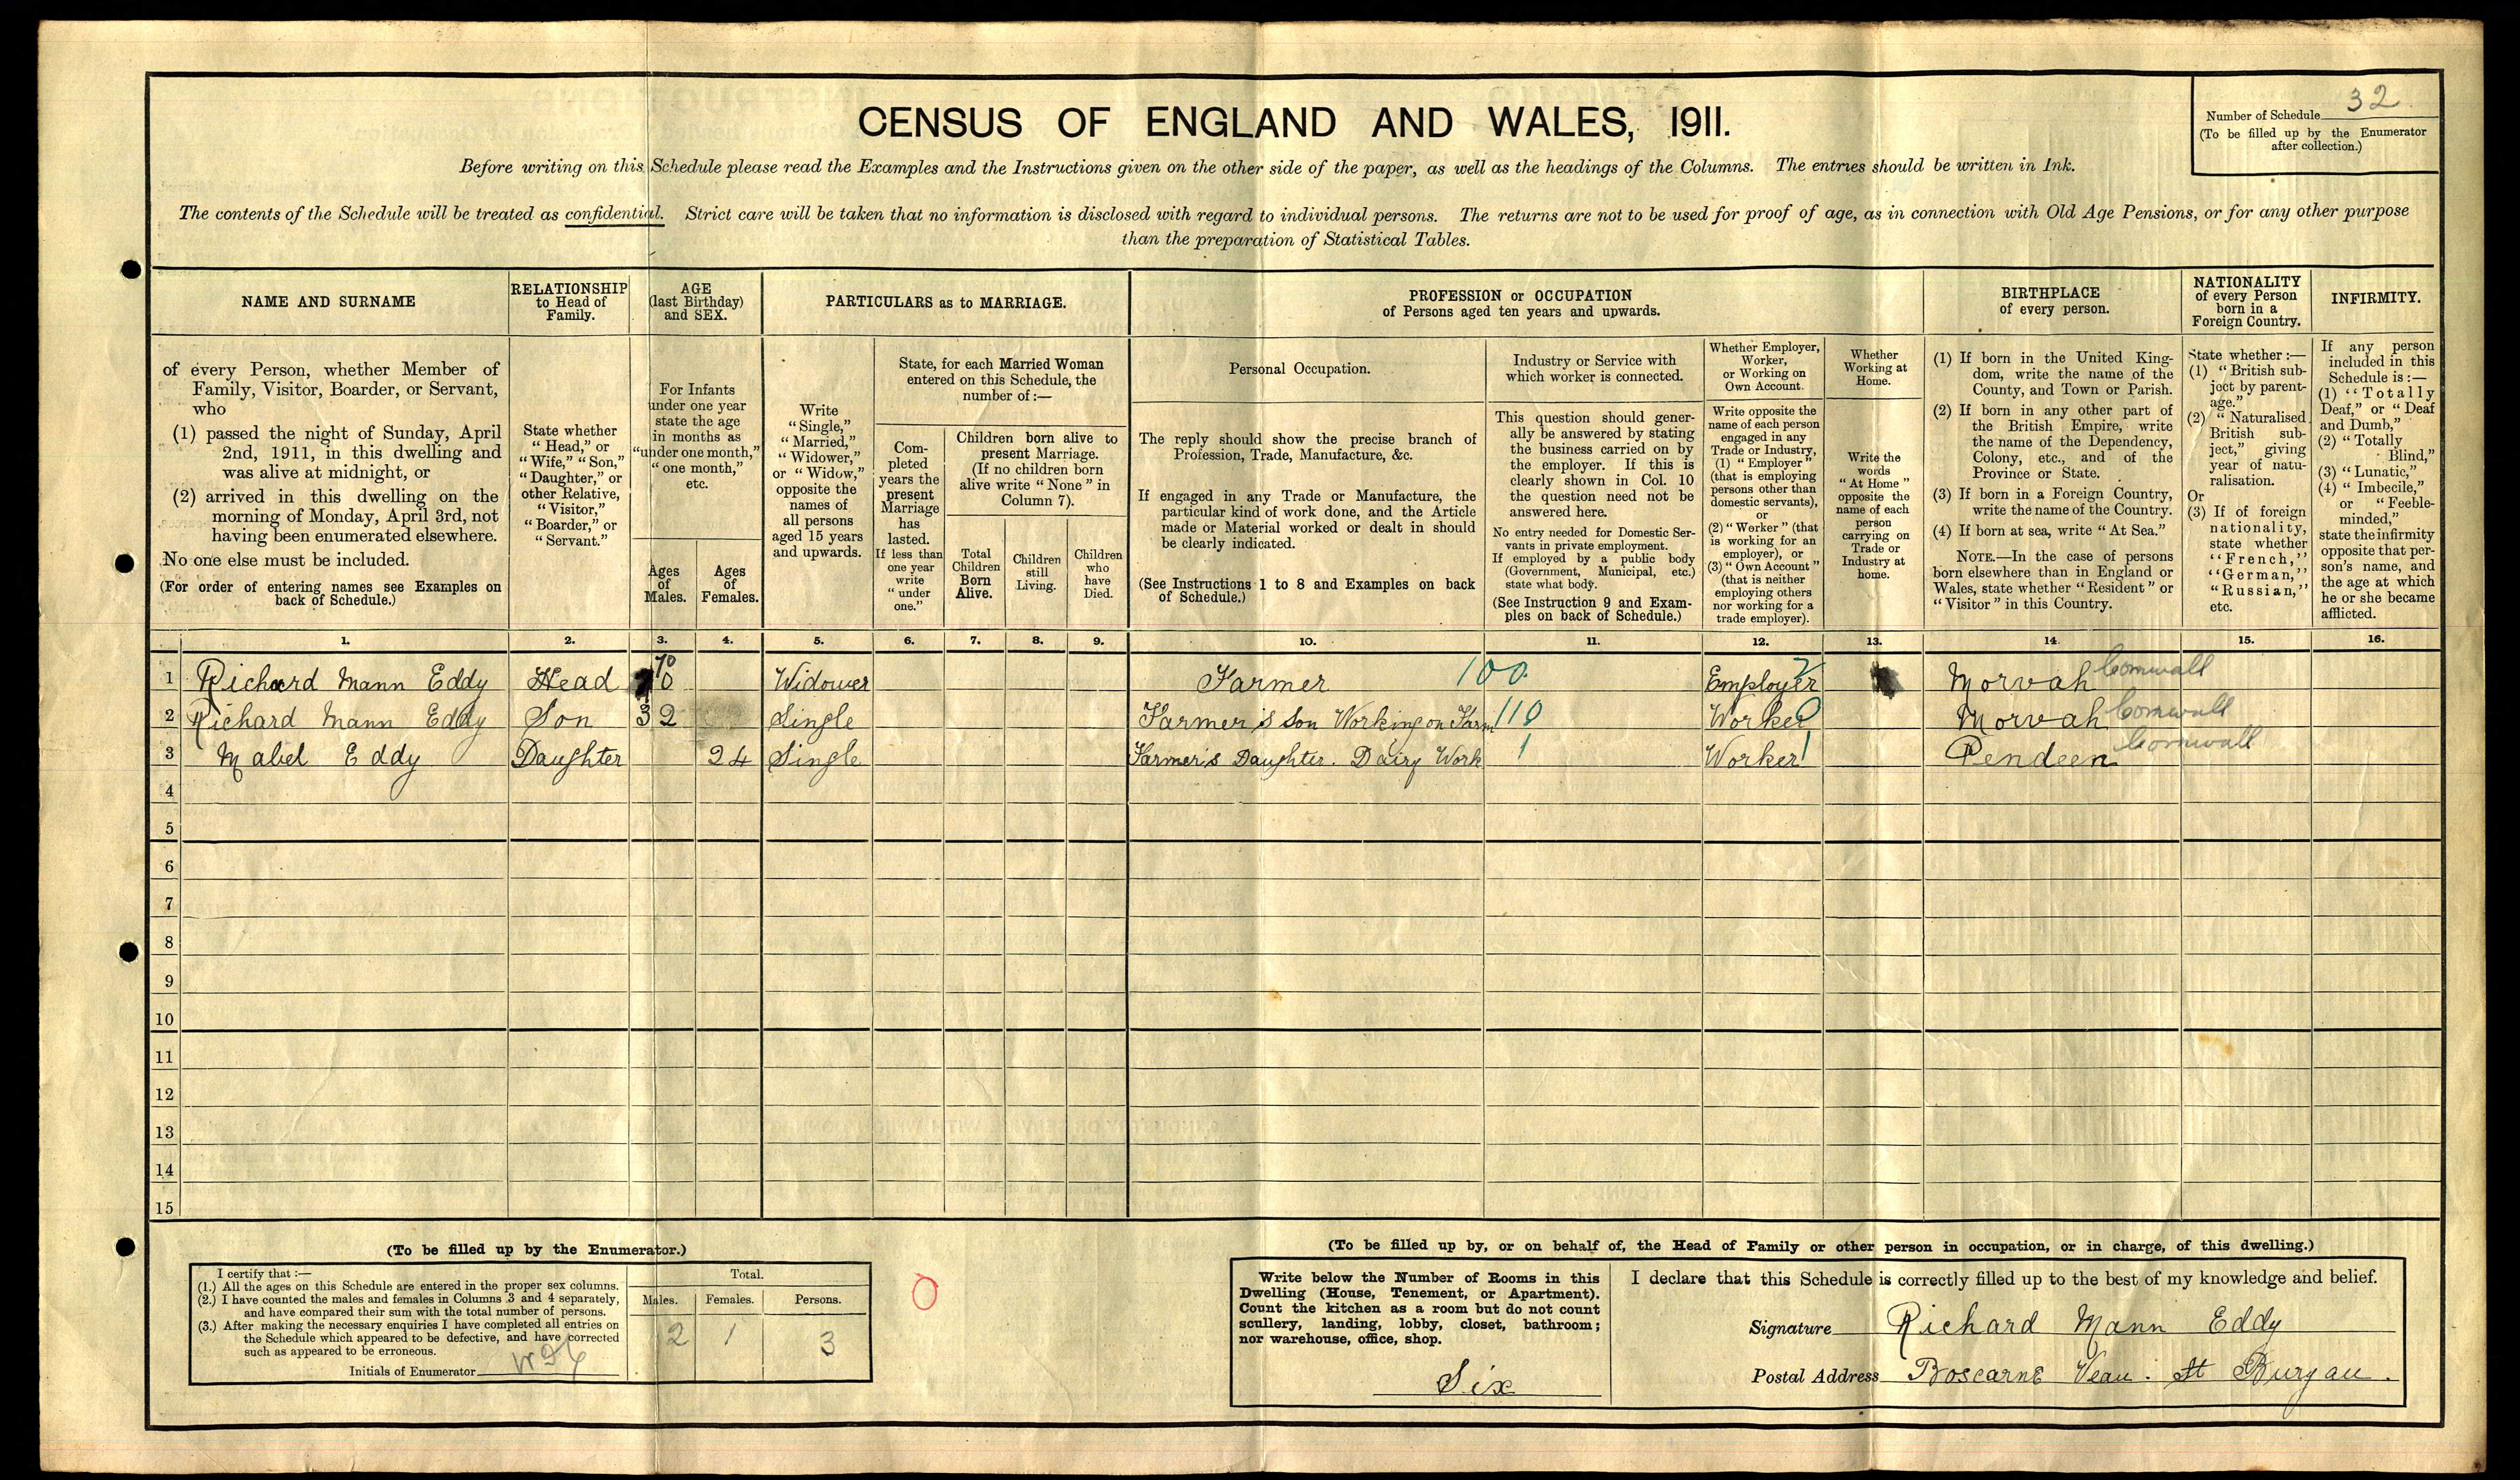 CENSUS OF ENGLAND AND WALES, 1911.
Number of Schedule 32
(To be filled up by the Enumerator
after collection.)
Before writing on this Schedule please read the Examples and the Instructions given on the other side of the paper, as well as the headings of the Columns. The entries should be written in Ink.
The contents of the Schedule will be treated as confidential. Strict care will be taken that no information is disclosed with regard to individual persons. The returns are not to be used for proof of age, as in connection with Old Age Pensions, or for any other purpose
than the preparation of Statistical Tables.
NAME AND SURNAME
of every Person, whether Member of
Family, Visitor, Boarder, or Servant,
who
(1) passed the night of Sunday, April
2nd, 1911, in this dwelling and
was alive at midnight, or
(2) arrived in this dwelling on the
morning of Monday, April 3rd, not
having been enumerated elsewhere.
No one else must be included.
(For order of entering names see Examples on
back of Schedule.)
RELATIONSHIP
to Head of
Family.
State whether
"Head," or
"Wife," "Son,"
"Daughter," or
other Relative,
"Visitor,"
"Boarder," or
"Servant."
AGE
(last Birthday)
and SEX.
For Infants
under one year
state the age
in months as
"under one month,"
"one month,"
etc.
Ages
of
Males.
Ages
of
Females.
PARTICULARS as to MARRIAGE.
Write
"Single,"
"Married,"
"Widower,"
or "Widow,"
opposite the
names of
all persons
aged 15 years
and upwards.
State, for each Married Woman
entered on this Schedule, the
number of:—
Com-
pleted
years the
present
Marriage
has
lasted.
If less than
one year
write
"under
one."
Children born alive to
present Marriage.
(If no children born
alive write "None" in
Column 7).
Total
Children
Born
Alive.
Children
still
Living.
Children
who
have
Died.
PROFESSION or OCCUPATION
of Persons aged ten years and upwards.
Personal Occupation.
The reply should show the precise branch of
Profession, Trade, Manufacture, &c.
If engaged in any Trade or Manufacture, the
particular kind of work done, and the Article
made or Material worked or dealt in should
be clearly indicated.
(See Instructions 1 to 8 and Examples on back
of Schedule.)
Industry or Service with
which worker is connected.
This question should gener-
ally be answered by stating
the business carried on by
the employer. If this is
clearly shown in Col. 10
the question need not be
answered here.
No entry needed for Domestic Ser-
vants in private employment.
If employed by a public body
(Government, Municipal, etc.)
state what body.
(See Instruction 9 and Exam-
ples on back of Schedule.)
Whether Employer,
Worker,
or Working on
Own Account.
Write opposite the
name of each person
engaged in any
Trade or Industry,
(1) "Employer"
(that is employing
persons other than
domestic servants),
or
(2) "Worker" (that
is working for an
employer), or
(3) "Own Account"
(that is neither
employing others
nor working for a
trade employer).
Whether
Working at
Home.
Write the
words
"At Home"
opposite the
name of each
person
carrying on
Trade or
Industry at
home.
BIRTHPLACE
of every person.
(1) If born in the United King-
dom, write the name of the
County, and Town or Parish.
(2) If born in any other part of
the British Empire, write
the name of the Dependency,
Colony, etc., and of the
Province or State.
(3) If born in a Foreign Country,
write the name of the Country.
(4) If born at sea, write "At Sea."
NOTE.—In the case of persons
born elsewhere than in England or
Wales, state whether "Resident" or
"Visitor" in this Country.
NATIONALITY
of every Person
born in a
Foreign Country.
State whether:—
(1) "British sub-
ject by parent-
age."
(2) "Naturalised
British sub-
ject," giving
year of natu-
ralisation.
Or
(3) If of foreign
nationality,
state whether
"French,"
"German,"
"Russian,"
etc.
INFIRMITY.
If any person
included in this
Schedule is:—
(1) "Totally
Deaf," or "Deaf
and Dumb,"
(2) "Totally
Blind,"
(3) "Lunatic,"
(4) "Imbecile,"
or "Feeble-
minded,"
state the infirmity
opposite that per-
son's name, and
the age at which
he or she became
afflicted.
1. 2. 3. 4. 5. 6. 7. 8. 9. 10. 11. 12. 13. 14. 15. 16.
1 Richard Mann Eddy Head 70 Widower Farmer 100 Employer 2 Morvah Cornwall
2 Richard Mann Eddy Son 32 Single Farmer's Son Working on Farm 110 Worker 0 Morvah Cornwall
3 Mabel Eddy Daughter 24 Single Farmer's Daughter. Dairy Work 1 Worker 1 Pendeen Cornwall
4
5
6
7
8
9
10
11
12
13
14
15
(To be filled up by the Enumerator.)
I certify that:—
(1.) All the ages on this Schedule are entered in the proper sex columns.
(2.) I have counted the males and females in Columns 3 and 4 separately,
and have compared their sum with the total number of persons.
(3.) After making the necessary enquiries I have completed all entries on
the Schedule which appeared to be defective, and have corrected
such as appeared to be erroneous.
Initials of Enumerator
Total.
Males. Females. Persons.
2 1 3
0
(To be filled up by, or on behalf of, the Head of Family or other person in occupation, or in charge, of this dwelling.)
Write below the Number of Rooms in this
Dwelling (House, Tenement, or Apartment).
Count the kitchen as a room but do not count
scullery, landing, lobby, closet, bathroom;
nor warehouse, office, shop.
Six
I declare that this Schedule is correctly filled up to the best of my knowledge and belief.
Signature Richard Mann Eddy
Postal Address Boscarne Vean. St Buryan.